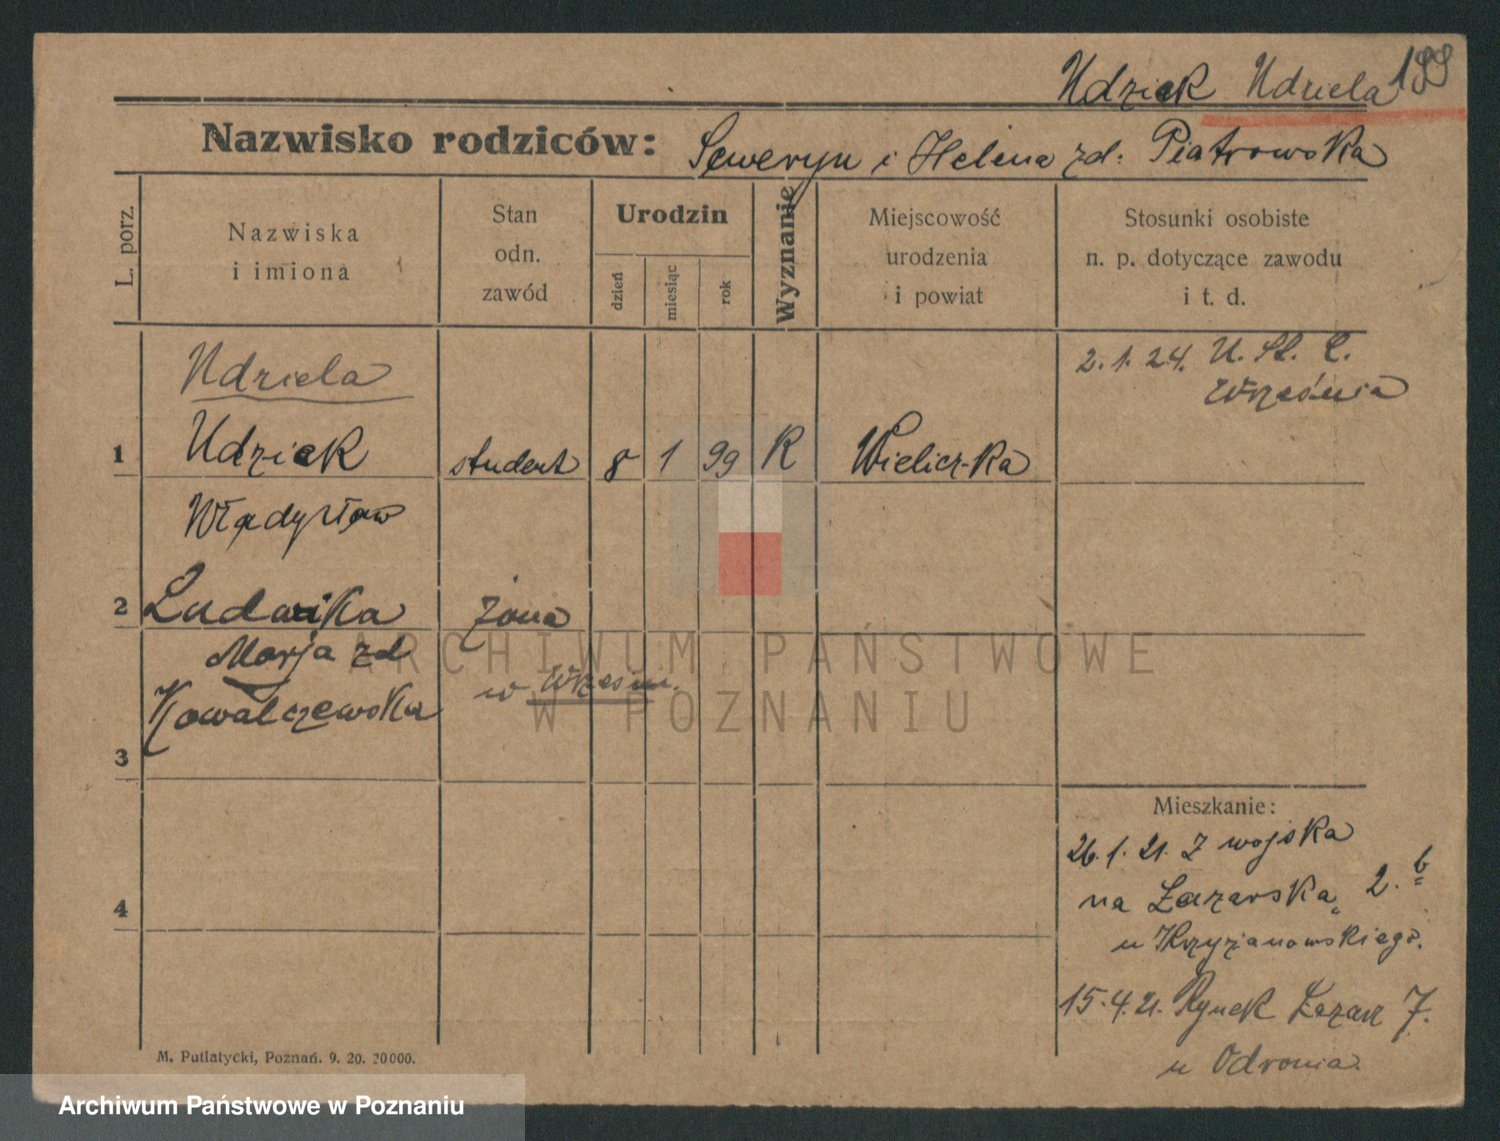 Udziek Udziela 199
Nazwisko rodziców: Seweryn i Helena zd. Piatrowska
L. porz.
Nazwiska
i imiona
Stan
odn.
zawód
Urodzin
dzień
miesiąc
rok
Wyznanie
Miejscowość
urodzenia
i powiat
Stosunki osobiste
n. p. dotyczące zawodu
i t. d.
Udziela
2.1.24. U. St. C.
Września
1 Udziek student 8 1 99 R Wieliczka
Władysław
2 Ludwika żona
Marja zd
w Wrześni.
Kowalczewska
3
Mieszkanie:
26.1.21. Z wojska
na Łazarską 2.b
4
u Krzyżanowskiego.
15.4.21. Rynek Łazarz 7.
u Odronia.
M. Putiatycki, Poznań. 9. 20. 20000.
ARCHIWUM PAŃSTWOWE
W POZNANIU
Archiwum Państwowe w Poznaniu